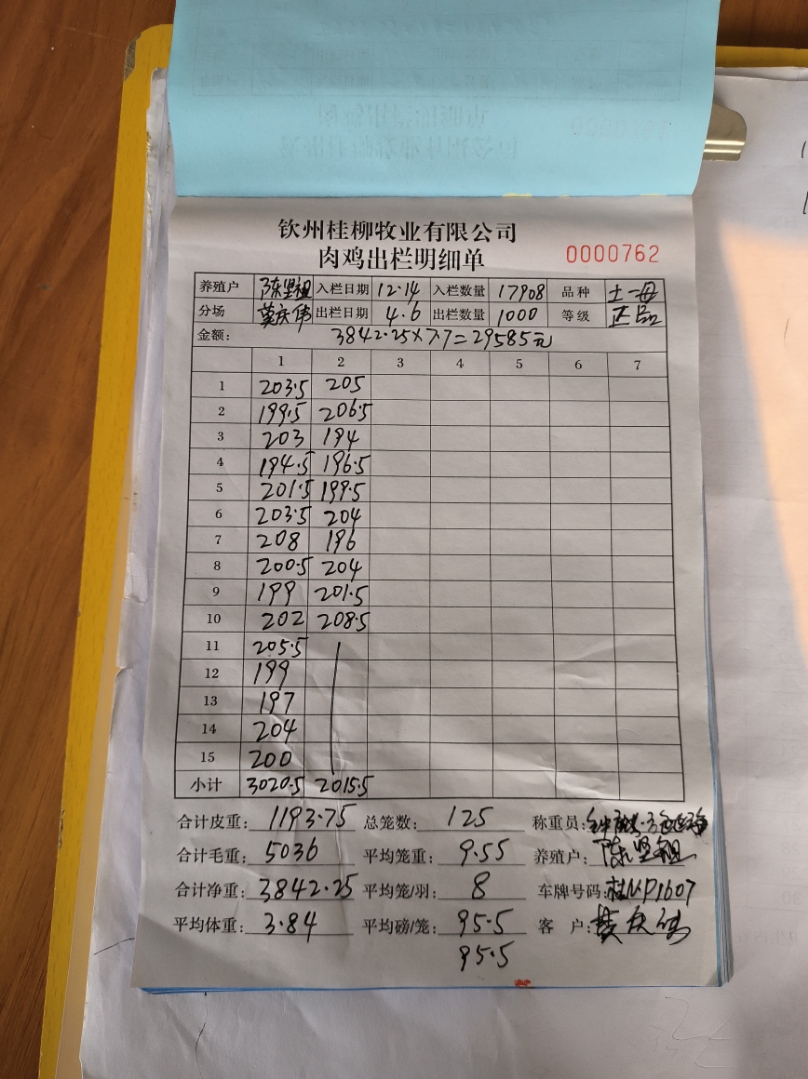 钦州桂柳牧业有限公司
肉鸡出栏明细单 0000762
养殖户 陈坚祖 入栏日期 12.14 入栏数量 17908 品种 土一母
分场 莫庆伟 出栏日期 4.6 出栏数量 1000 等级 正品
金额: 3842.25×7.7=29585元
1 2 3 4 5 6 7
1 203.5 205
2 199.5 206.5
3 203 194
4 194.5 196.5
5 201.5 199.5
6 203.5 204
7 208 196
8 200.5 204
9 199 201.5
10 202 208.5
11 205.5
12 199
13 197
14 204
15 200
小计 3020.5 2015.5
合计皮重: 1193.75 总笼数: 125 称重员:
合计毛重: 5036 平均笼重: 9.55 养殖户: 陈坚祖
合计净重: 3842.25 平均笼/羽: 8 车牌号码: 桂NP1607
平均体重: 3.84 平均磅/笼: 95.5 客户: 莫庆伟
95.5